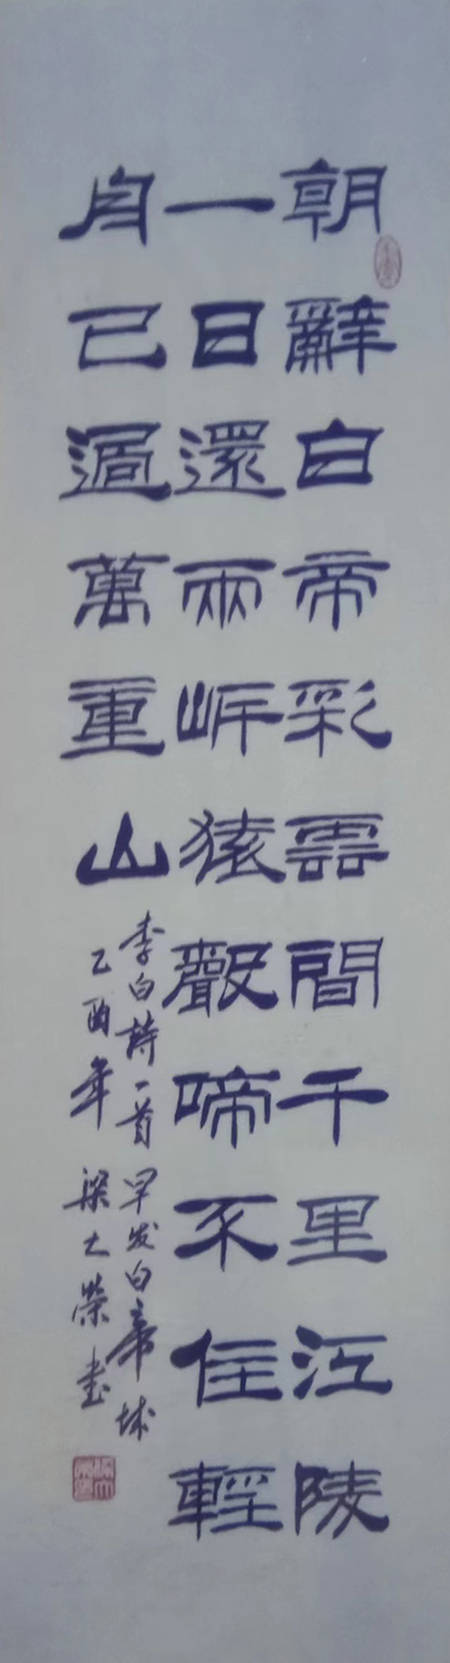 朝辭白帝彩雲間千里江陵
一日還兩岸猿聲啼不住輕
舟已過萬重山
李白詩一首 早发白帝城
乙酉年 梁大荣书